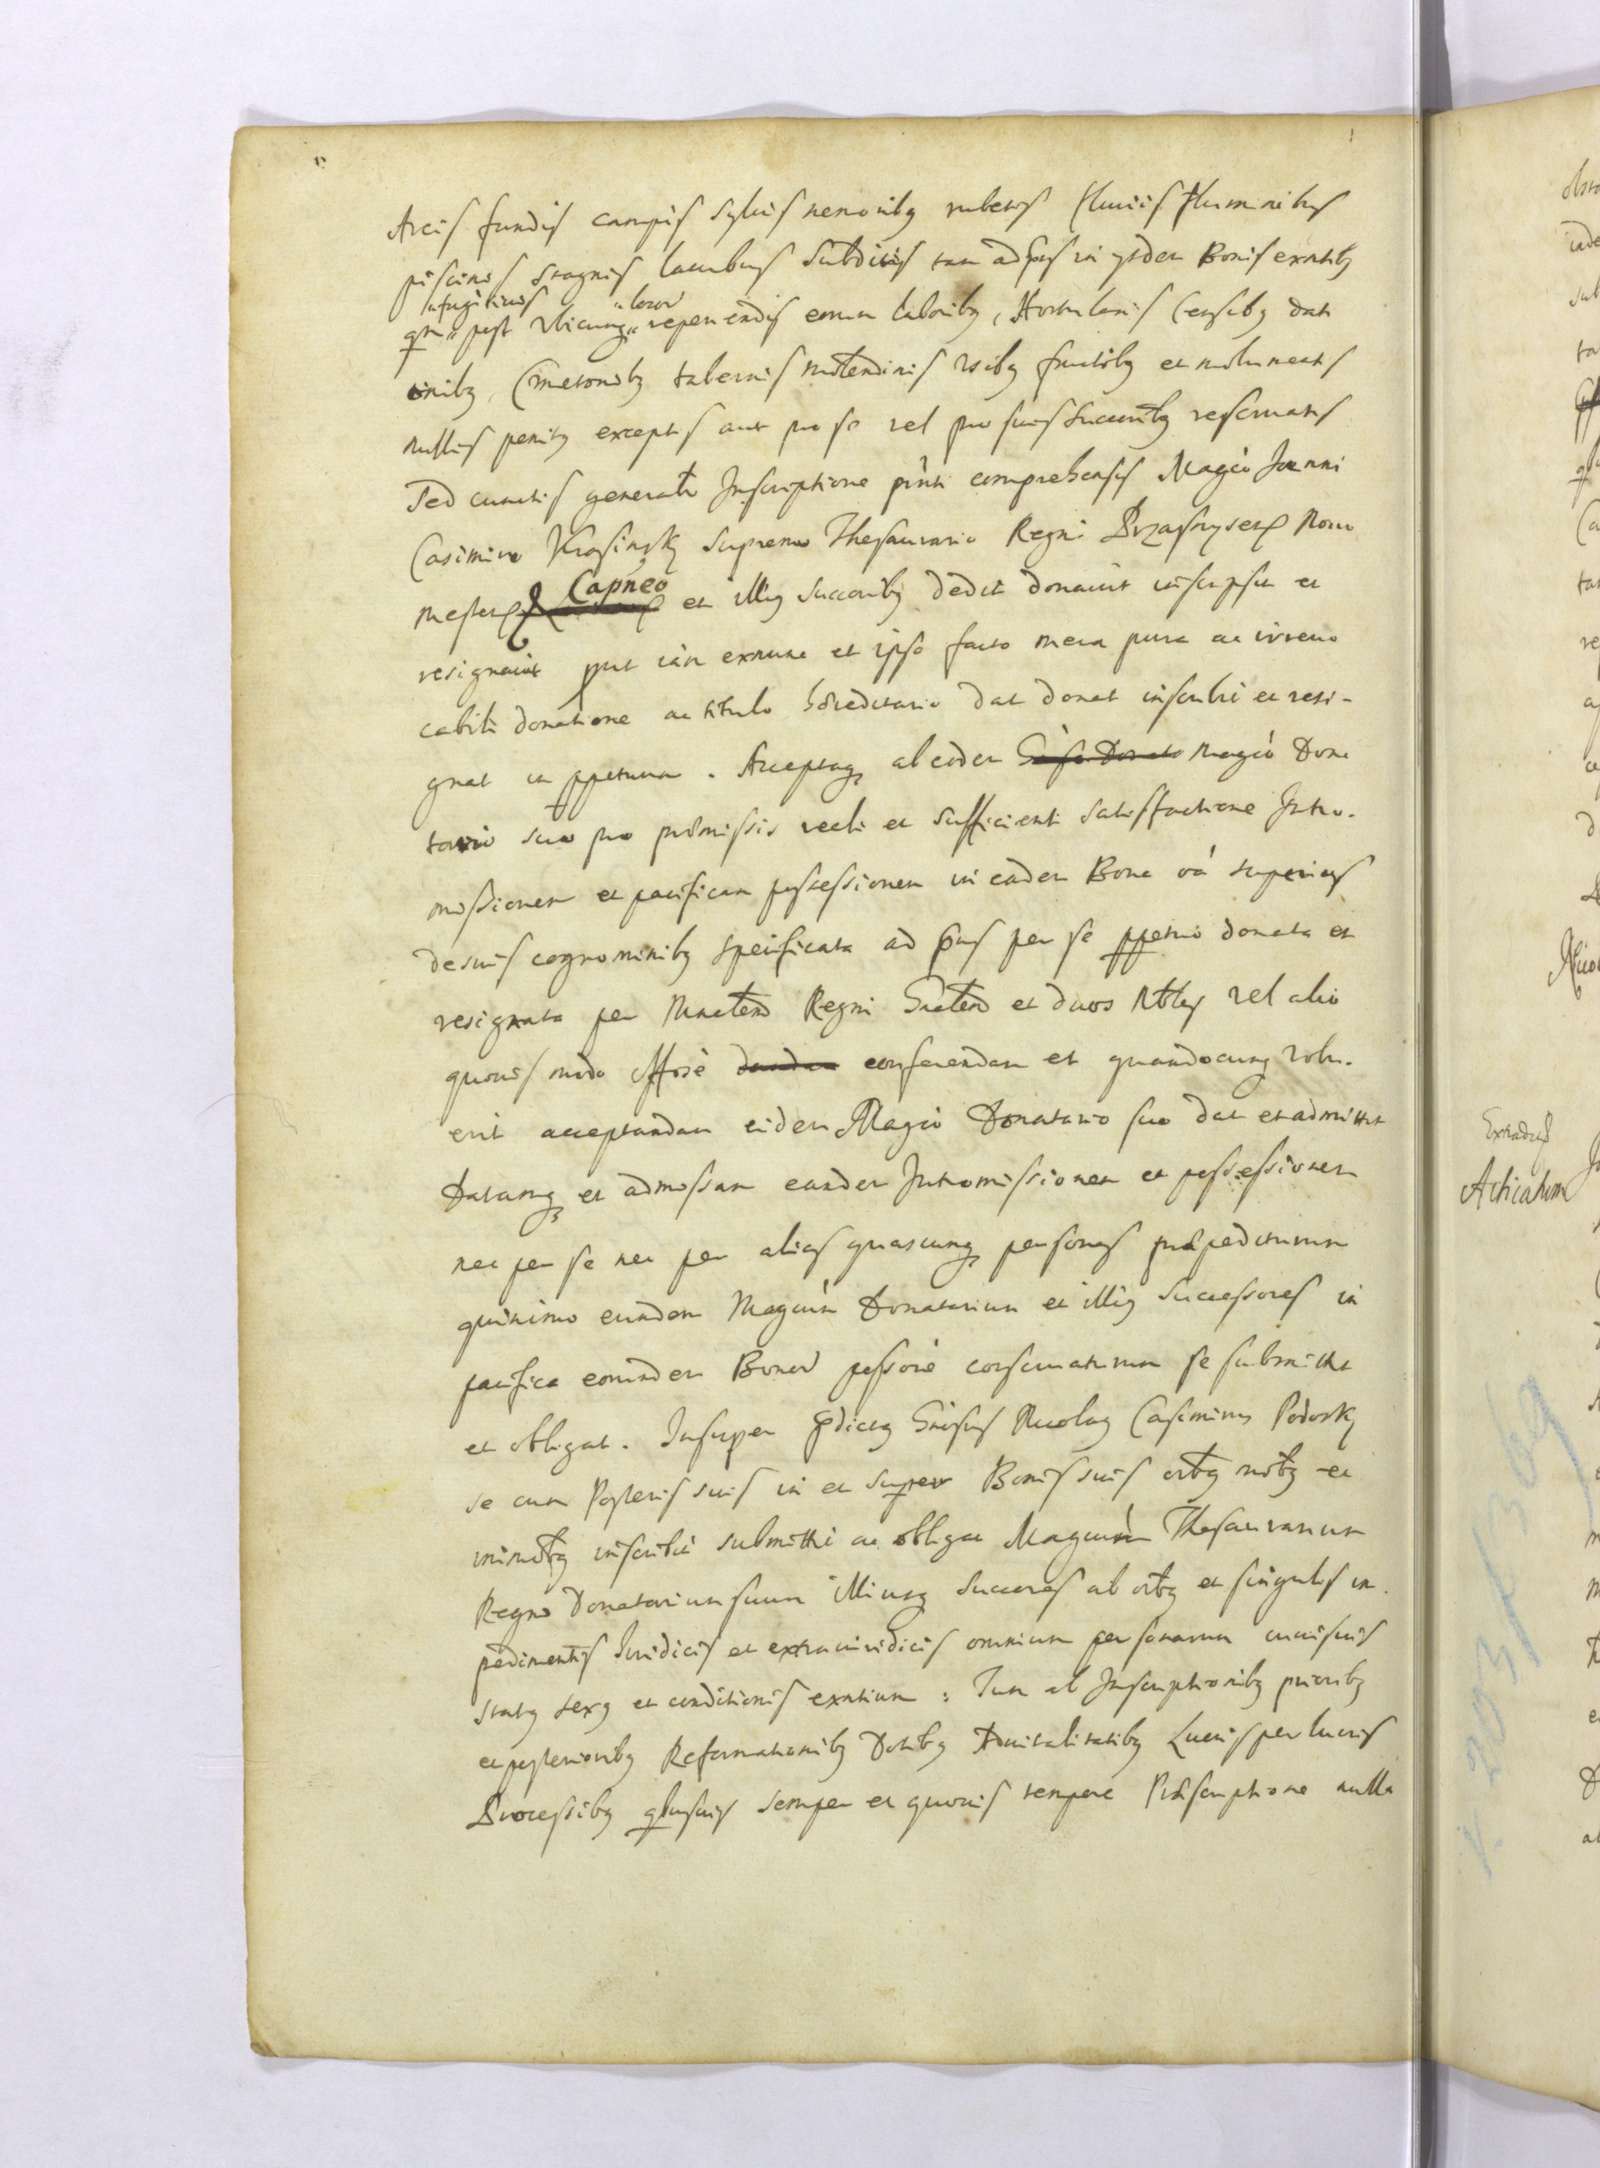 Arcis fundis campis sylvis nemoribq rubetis fluviis fluminibus
piscinis stagnis lacubus subditis tam ad pns in ysdem Bonis exntibq
fugitivis locor
qm post ubicunq reperiendis eorum laboribq, Hortulanis Censibq dati
onibq, Cmetonibq tabernis molendinis usibq fructibq emolumentis
nullis penitq exceptis aut pro se vel pro suis succoribq reservatis
Sed cunctis generalr Inscriptione pnti comprehensis Magco Joanni
Casimiro Krasinsky Supremo Thesaurario Regni Przasnysen Novo
Mesten Capneo et illiq Succoribq dedit donavit inscripsit et
resignavit put iam exnunc et ipso facto mera pura ac irrevo
cabili donatione ac titulo hereditario dat donat inscribit et resi-
gnat in ppetuum. Acceptaq ab eodem Gnoso Donato Magco Dona
tario suo pro pramissis reali et sufficienti satisfactione Intro-
missionem et pacificam possessionem in eadem Bona va superius
de suis cognominibq specificata ad pns per se ppetuo donata et
resignata per Mnrtlem Regni Gnrtlem et duos Nbles vel alio
quovis modo offose dandam conferendam et quandocunq volu-
erit acceptandam eidem Magco Donatario suo dat et admittit
Datamq et admissam eandem Intromissionem et possessionem
nec per se nec per alias quascunq personas prapediturum
quinimo eundem Magcum Donatarium et illiq Successores in
pacifica eorundem Bonor possone conservaturum se submittit
et obligat. Insuper pdictq Gnosus Nicolaq Casimirus Podosky
se cum Posteris suis in et super Bonis suis oibq mobq et
immobq inscribit submittit ac obligat Magcum Thesaurarium
Regni Donatarium suum illiusq Succores ab oibq et singulis im-
pedimentis Juridicis et extraiuridicis omnium personarum cuiusvis
statq sexq et conditionis exntium: Tum ab Inscriptionibq prioribq
et posterioribq Reformationibq Dotibq Advitalitatibq Lucris perlucris
Processibq qbusvis semper et quovis tempore Prascriptione nulla
Extradit
Acticatum